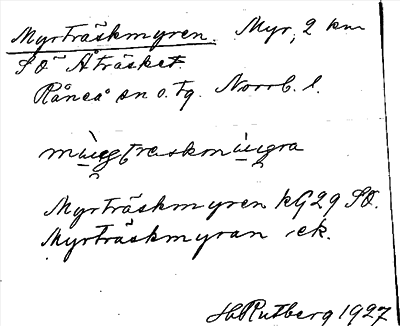 Myrträskmyren. Myr, 2 km
SO Åträsket.
Råneå sn o. tg. Norrb. l.
Myrträskmyren kG29 SO.
Myrträskmyran ek.
H Rutberg 1927